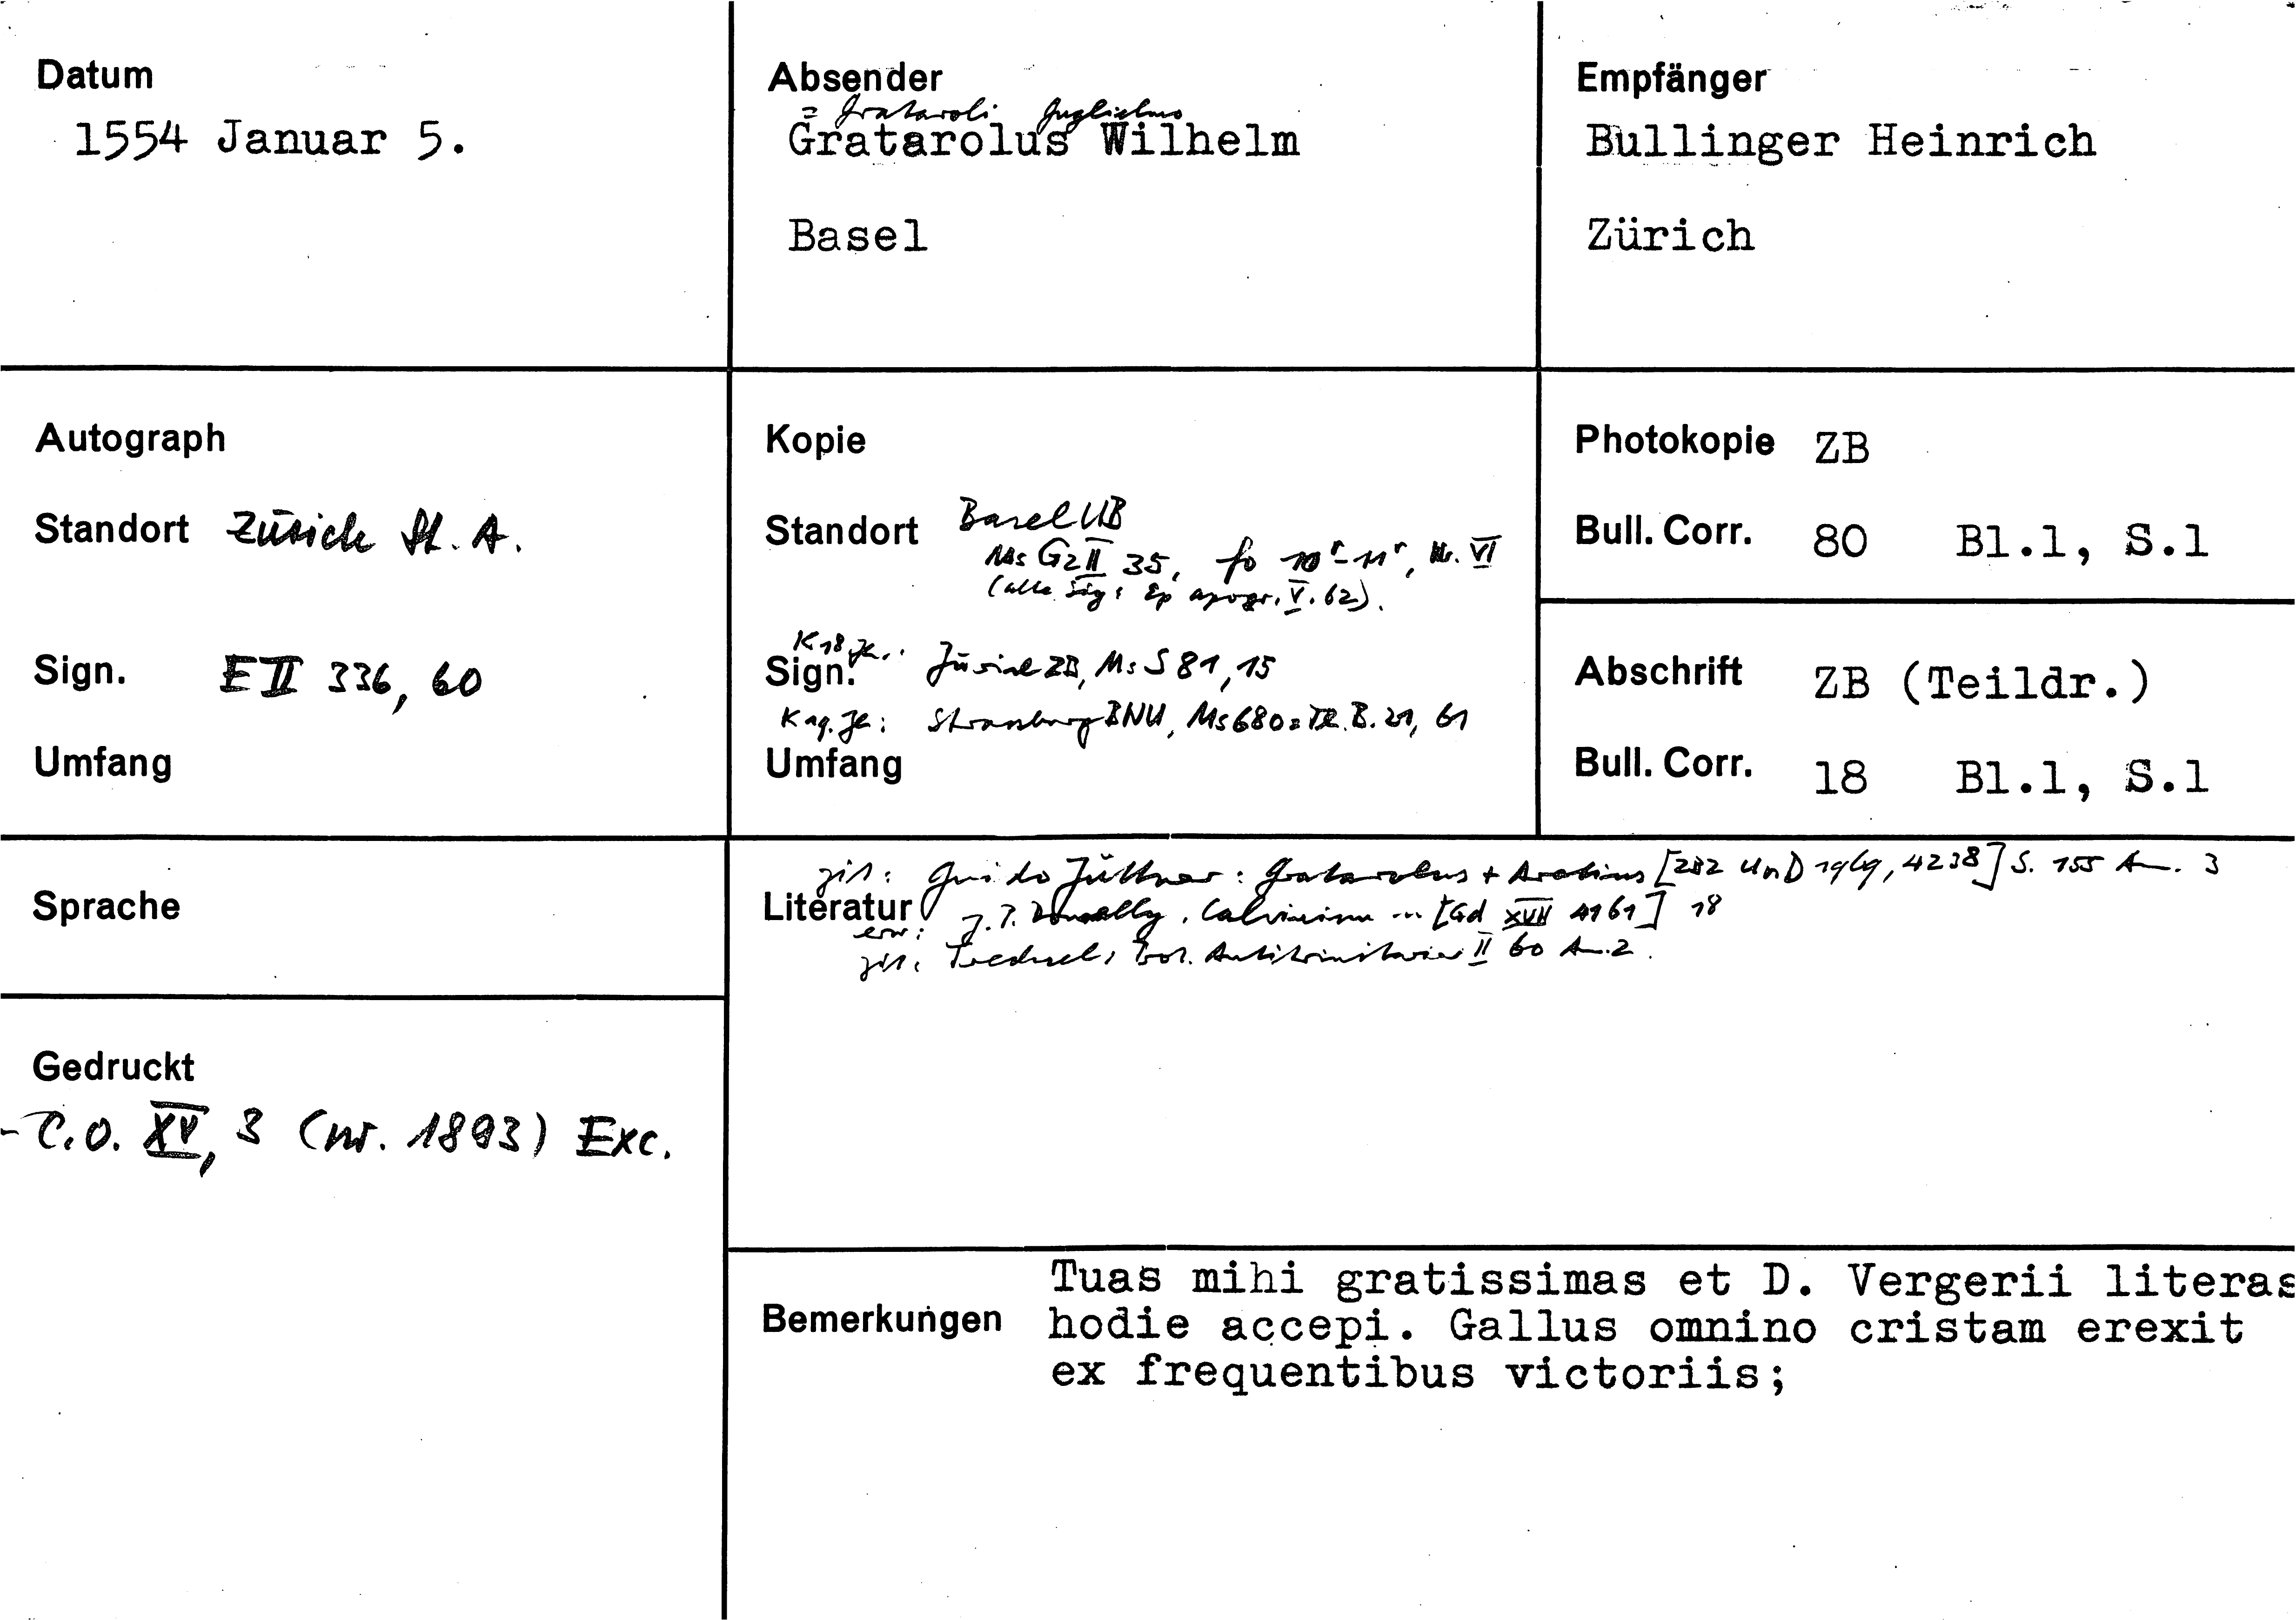 Datum
1554 Januar 5.
Absender
= Grataroli Guglielmo
Gratarolus Wilhelm
Basel
Empfänger
Bullinger Heinrich
Zürich
Autograph
Standort Zürich St. A.
Sign. E II 336, 60
Umfang
Kopie
Standort Basel UB
Ms G2 II 35, fo 10r-11r, Nr. VI
(alte Sig: Ep apogr. V. 62).
K 18. Jh.: Zürich ZB, Ms S 81, 15
Sign.
K 19. Jh: Strassburg BNU, Ms 680 = B. 21, 61
Umfang
Photokopie ZB
Bull. Corr. 80 Bl.1, S.1
Abschrift ZB (Teildr.)
Bull. Corr. 18 Bl.1, S.1
Sprache
Gedruckt
- C.O. XV, 3 (nr. 1893) Exc.
zit: Guido Jüttner: Gratarolus + Aretius [282 UnD 1969, 4238] S. 155 A. 3
Literatur
erw: J. P. Donnelly, Calvinism ... [Gd XVII 4161] 18
zit: Trechsel, Prot. Antitrinitarier II 60 A. 2.
Bemerkungen
Tuas mihi gratissimas et D. Vergerii literas
hodie accepi. Gallus omnino cristam erexit
ex frequentibus victoriis;